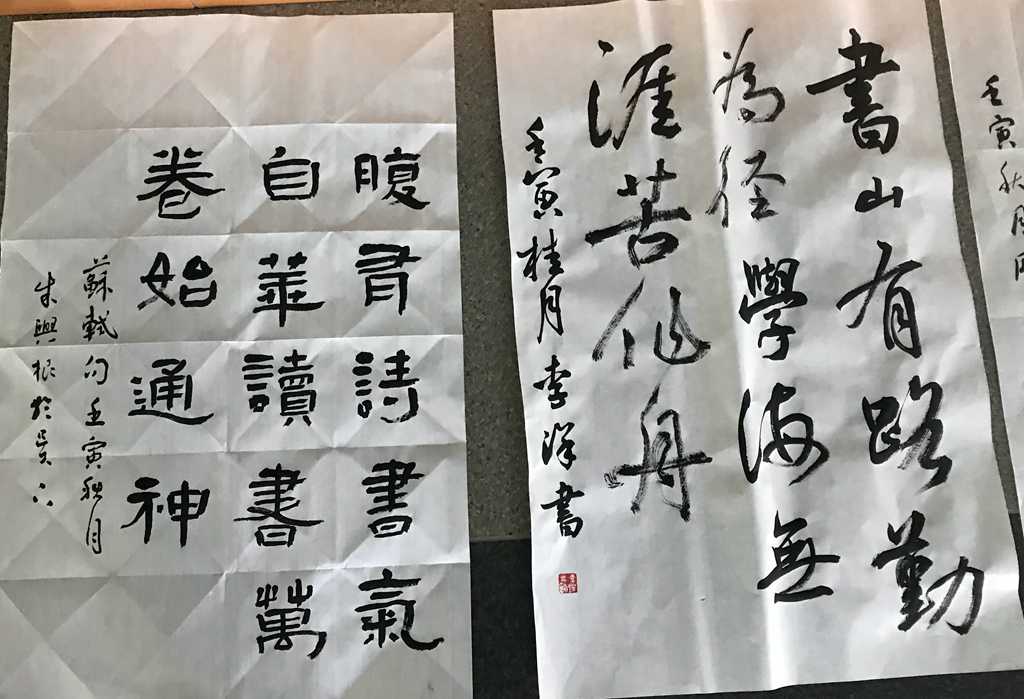 壬寅秋月
書山有路勤
為径學海無
涯苦作舟
壬寅桂月李洋書
腹有詩書氣
自華讀書萬
卷始通神
蘇軾句壬寅秋月
朱興根於吳下